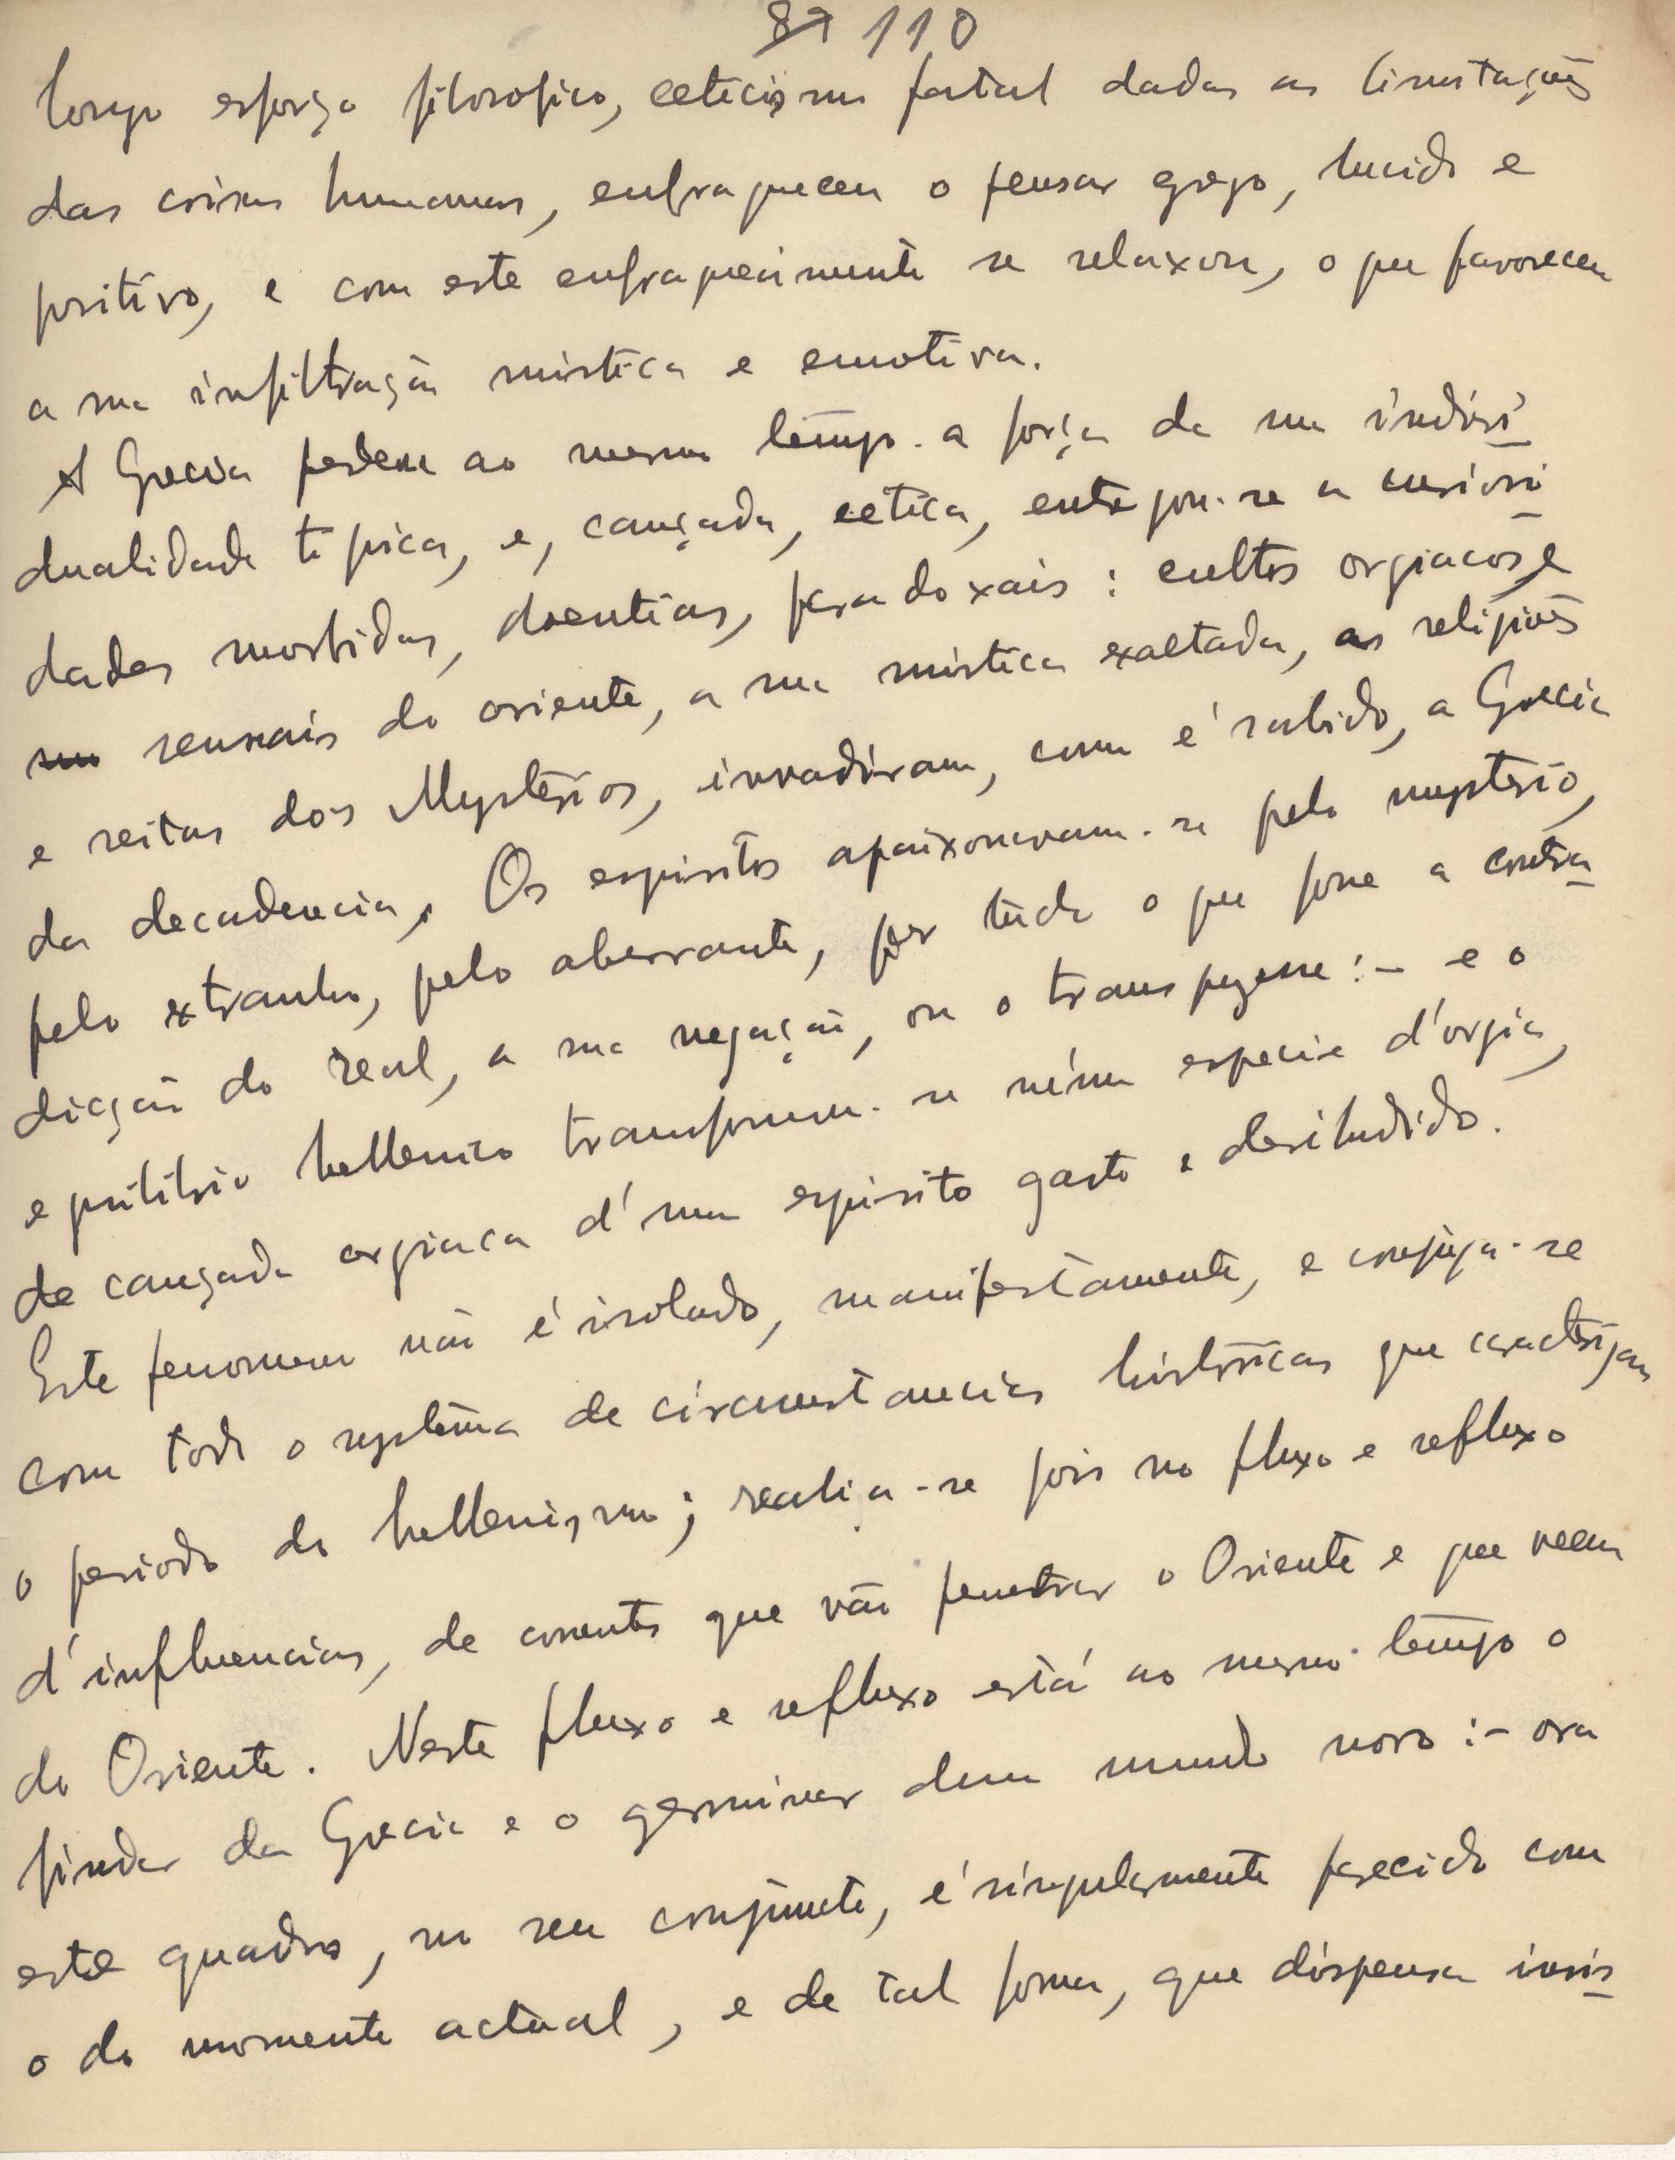 87 110
longo esforço filosofico, ceticismo fatal dadas as limitações
das coisas humanas, enfraqueceu o pensar grego, lucido e
positivo, e com este enfraquecimento se relaxou, o que favoreceu
a sua infiltração mistica e emotiva.
A Grecia perdeu ao mesmo tempo a força da sua indivi-
dualidade tipica, e, cançada, cetica, entregou-se a curiosi-
dades morbidas, doentias, paradoxais: cultos orgiacos e
sensuais do oriente, a sua mistica exaltada, as religiões
e seitas dos Mysterios, invadiram, como é sabido, a Grecia
da decadencia. Os espiritos apaixonavam-se pelo mysterio,
pelo extranho, pelo aberrante, por tudo o que fosse a contra-
dicção do real, a sua negação, ou o transpozesse:- e o
equilibrio hellenico transformou-se n'uma especie d'orgia,
de cançada orgiaca d'um espirito gasto e desiludido.
Este fenomeno não é isolado, manifestamente, e conjuga-se
com todo o systema de circumstancias historicas que caracterizam
o periodo do hellenismo; realiza-se pois no fluxo e refluxo
d'influencias, de correntes que vão penetrar o Oriente e que veem
do Oriente. Neste fluxo e refluxo está ao mesmo tempo o
findar da Grecia e o germinar dum mundo novo:- ora
este quadro, no seu conjuncto, é singularmente parecido com
o do momento actual, e de tal forma, que dispensa insis-